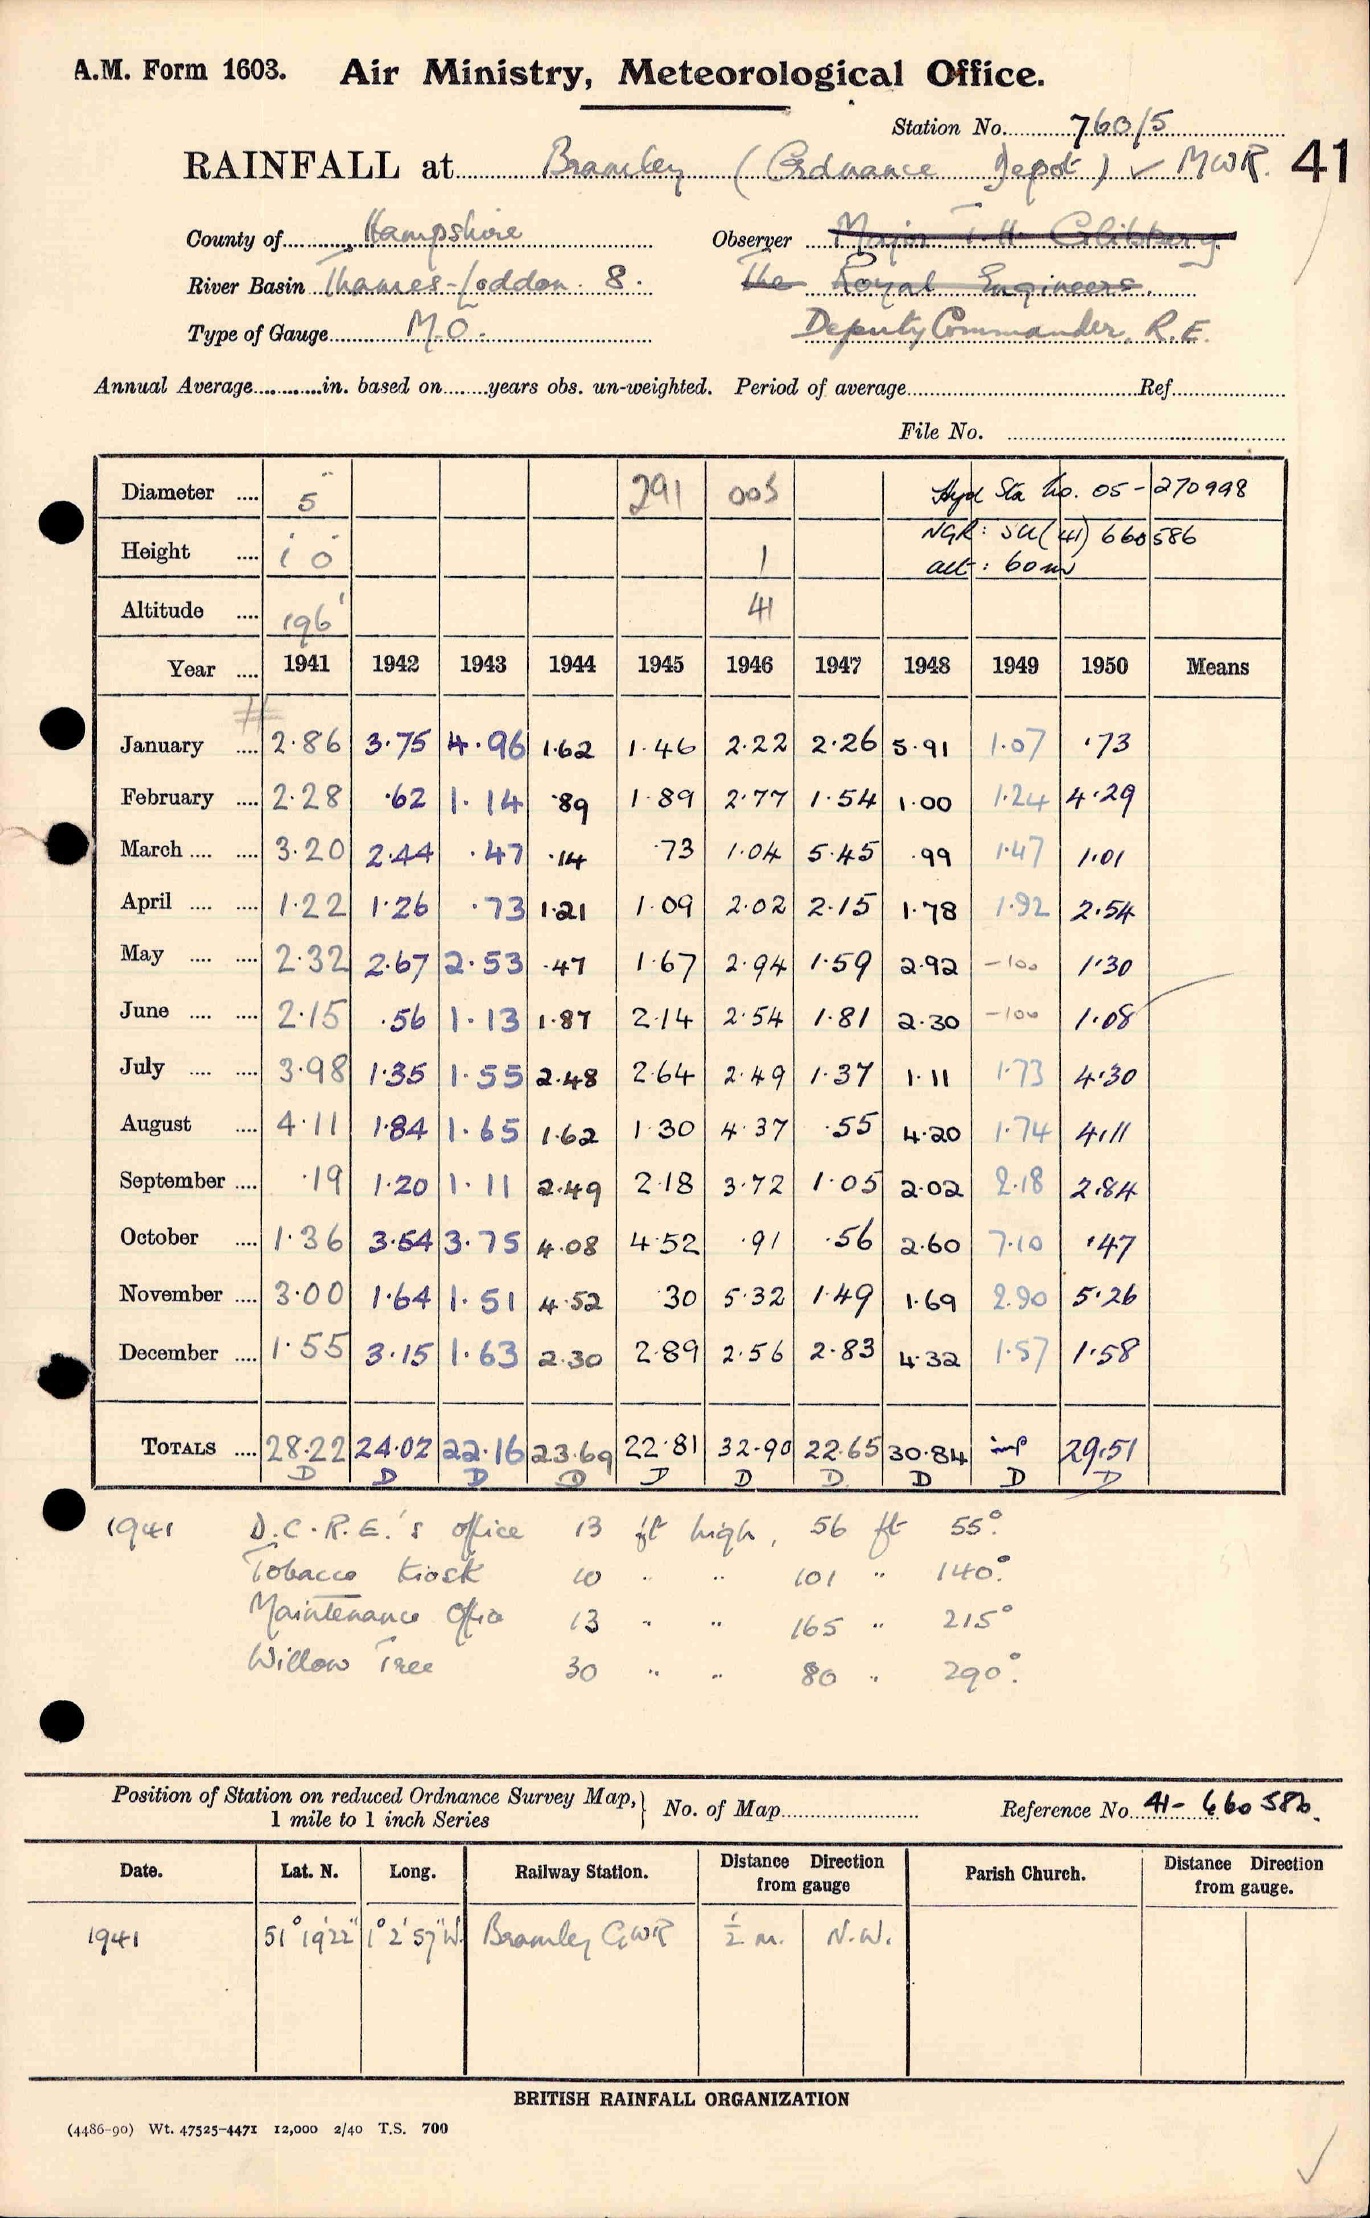 A.M. Form 1603. Air Ministry, Meteorological Office.
Station No. 760/5
RAINFALL at Bramley (Ordnance Depot) ✓ MWR. 41
County of Hampshire Observer Major T. H.
River Basin Thames-Loddon. 8. The Royal Engineers.
Type of Gauge M.O. Deputy Commander, R.E.
Annual Average............in. based on........years obs. un-weighted. Period of average Ref.
File No.
Diameter .... 5" 291 005 Hyd Sta No. 05-270998
Height .... 1' 0" 1 NGR: SU(41) 660586
alt: 60m
Altitude .... 196' 41
Year .... 1941 1942 1943 1944 1945 1946 1947 1948 1949 1950 Means
January .... 2.86 3.75 4.96 1.62 1.46 2.22 2.26 5.91 1.07 .73
February .... 2.28 .62 1.14 .89 1.89 2.77 1.54 1.00 1.24 4.29
March .... .... 3.20 2.44 .47 .14 .73 1.04 5.45 .99 1.47 1.01
April .... .... 1.22 1.26 .73 1.21 1.09 2.02 2.15 1.78 1.92 2.54
May .... .... 2.32 2.67 2.53 .47 1.67 2.94 1.59 2.92 -100 1.30
June .... .... 2.15 .56 1.13 1.87 2.14 2.54 1.81 2.30 -100 1.08
July .... .... 3.98 1.35 1.55 2.48 2.64 2.49 1.37 1.11 1.73 4.30
August .... 4.11 1.84 1.65 1.62 1.30 4.37 .55 4.20 1.74 4.11
September .... .19 1.20 1.11 2.49 2.18 3.72 1.05 2.02 2.18 2.84
October .... 1.36 3.54 3.75 4.08 4.52 .91 .56 2.60 7.10 .47
November .... 3.00 1.64 1.51 4.52 .30 5.32 1.49 1.69 2.90 5.26
December .... 1.55 3.15 1.63 2.30 2.89 2.56 2.83 4.32 1.57 1.58
TOTALS .... 28.22 24.02 22.16 23.69 22.81 32.90 22.65 30.84 imp 29.51
D D D D D D D D D D
1941 D.C.R.E.'s office 13 ft high, 56 ft 55°.
Tobacco Kiosk 10 " " 101 " 140°.
Maintenance Office 13 " " 165 " 215°
Willow Tree 30 " " 80 " 290°.
Position of Station on reduced Ordnance Survey Map,
1 mile to 1 inch Series } No. of Map Reference No. 41- 660 586.
Date. Lat. N. Long. Railway Station. Distance Direction from gauge Parish Church. Distance Direction from gauge.
1941 51° 19' 22" 1° 2' 57" W. Bramley GWR ½ m. N.W.
BRITISH RAINFALL ORGANIZATION
(4486-90) Wt. 47525-4471 12,000 2/40 T.S. 700